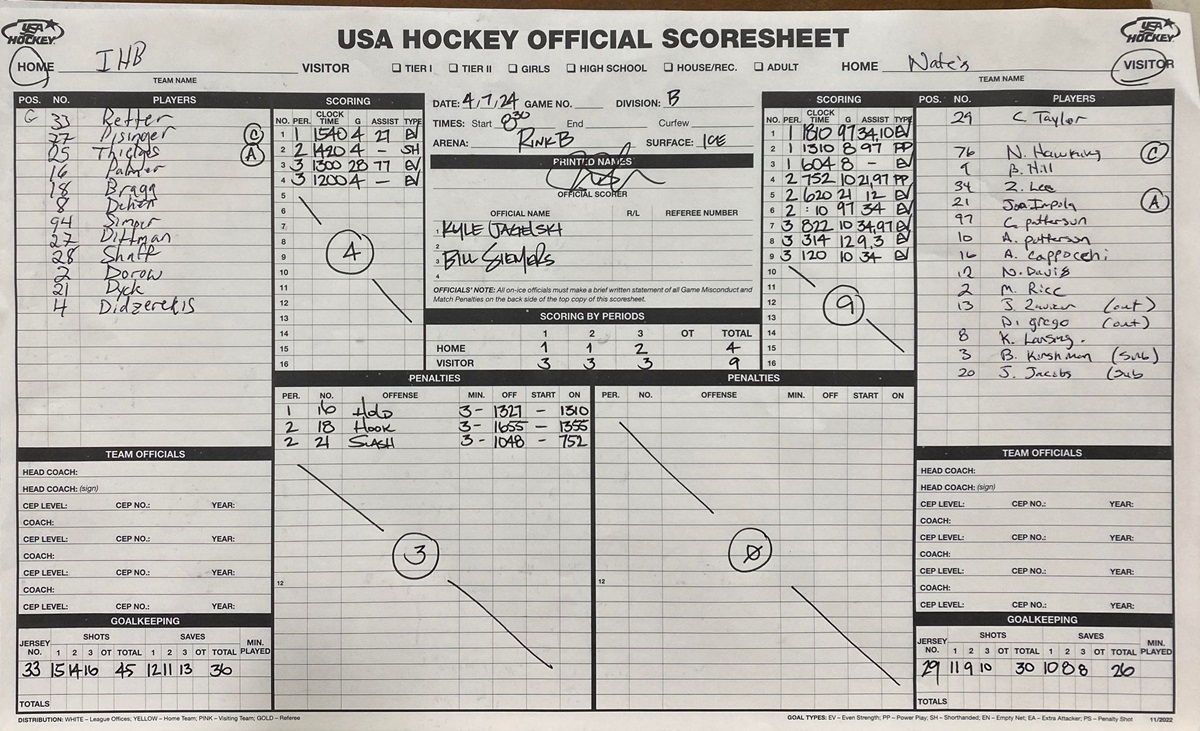 USA HOCKEY
USA HOCKEY OFFICIAL SCORESHEET
USA HOCKEY
HOME IHB VISITOR ☐ TIER I ☐ TIER II ☐ GIRLS ☐ HIGH SCHOOL ☐ HOUSE/REC. ☐ ADULT HOME Nate's VISITOR
TEAM NAME TEAM NAME
POS. NO. PLAYERS
G 33 Retter
77 Pisinger C
25 Thielges A
16 Palmer
18 Bragg
8
94
27 Dittman
28 Shaff
2 Dorow
21 Dyck
4 Didzerekis
SCORING
NO. PER. CLOCK TIME G ASSIST TYPE
1 1 1540 4 27 EV
2 2 1420 4 - SH
3 3 1300 28 77 EV
4 3 1200 4 - EV
5
6
7
8 4
9
10
11
12
13
14
15
16
DATE: 4,7,24 GAME NO. DIVISION: B
TIMES: Start 8:30 End Curfew
ARENA: RINK B SURFACE: ICE
PRINTED NAMES
OFFICIAL SCORER
OFFICIAL NAME R/L REFEREE NUMBER
1 KYLE JAGELSKI
2
3 BILL SIEMERS
4
OFFICIALS' NOTE: All on-ice officials must make a brief written statement of all Game Misconduct and
Match Penalties on the back side of the top copy of this scoresheet.
SCORING BY PERIODS
1 2 3 OT TOTAL
HOME 1 1 2 4
VISITOR 3 3 3 9
SCORING
NO. PER. CLOCK TIME G ASSIST TYPE
1 1 1810 97 34,10 EV
2 1 1310 8 97 PP
3 1 604 8 - EV
4 2 752 10 21,97 PP
5 2 620 21 12 EV
6 2 :10 97 34 EV
7 3 822 10 34,97 EV
8 3 314 12 9,3 EV
9 3 120 10 34 EV
10
11
12 9
13
14
15
16
POS. NO. PLAYERS
29 C Taylor
76 N. Hawking C
9 B. Hill
34 Z. Lee
21 Joe Impola A
97 C. patterson
10 A. patterson
16 A. cappocchi
12 N. Davis
2 M. Rice
13 J. Zavier (out)
Di grego (out)
8 K. Lansing.
3 B. Kirshman (Sub)
20 J. Jacobs (Sub
PENALTIES
PER. NO. OFFENSE MIN. OFF START ON
1 16 HOLD 3 - 1327 - 1310
2 18 HOOK 3 - 1655 - 1355
2 21 SLASH 3 - 1048 - 752
3
12
PENALTIES
PER. NO. OFFENSE MIN. OFF START ON
0
12
TEAM OFFICIALS
HEAD COACH:
HEAD COACH: (sign)
CEP LEVEL: CEP NO.: YEAR:
COACH:
CEP LEVEL: CEP NO.: YEAR:
COACH:
CEP LEVEL: CEP NO.: YEAR:
COACH:
CEP LEVEL: CEP NO.: YEAR:
GOALKEEPING
JERSEY NO. SHOTS SAVES MIN. PLAYED
1 2 3 OT TOTAL 1 2 3 OT TOTAL
33 15 14 16 45 12 11 13 36
TOTALS
TEAM OFFICIALS
HEAD COACH:
HEAD COACH: (sign)
CEP LEVEL: CEP NO.: YEAR:
COACH:
CEP LEVEL: CEP NO.: YEAR:
COACH:
CEP LEVEL: CEP NO.: YEAR:
COACH:
CEP LEVEL: CEP NO.: YEAR:
GOALKEEPING
JERSEY NO. SHOTS SAVES MIN. PLAYED
1 2 3 OT TOTAL 1 2 3 OT TOTAL
29 11 9 10 30 10 8 8 26
TOTALS
DISTRIBUTION: WHITE – League Offices; YELLOW – Home Team; PINK – Visiting Team; GOLD – Referee
GOAL TYPES: EV – Even Strength; PP – Power Play; SH – Shorthanded; EN – Empty Net; EA – Extra Attacker; PS – Penalty Shot 11/2022